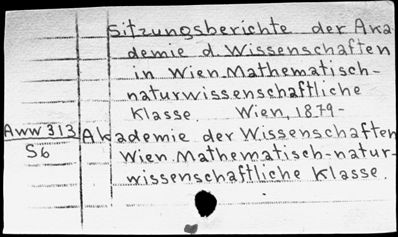 Sitzungsberichte der Aka
demie d. Wissenschaften
in Wien. Mathematisch-
naturwissenschaftliche
Klasse. Wien, 1879-
AWW 313 Akademie der Wissenschaften
S6 Wien. Mathematisch-natur-
wissenschaftliche Klasse.